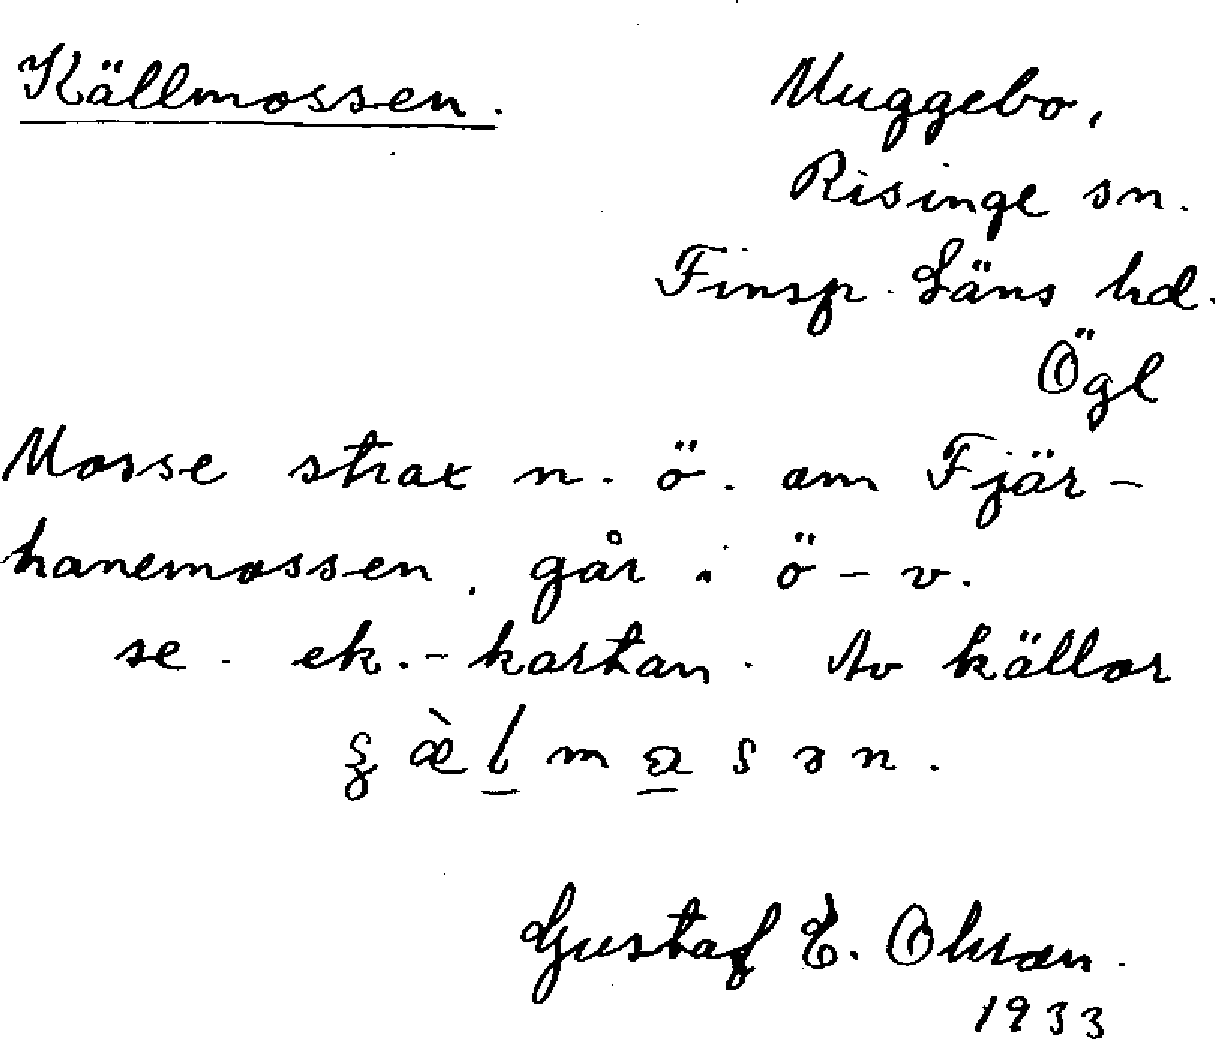 Källmossen.
Muggebo,
Risinge sn.
Finsp. Läns hd.
Ögl
Mosse strax n. ö. om Fjär-
hanemossen, går i ö - v.
se. ek.-kartan. Av källor
Gustaf E.
1933